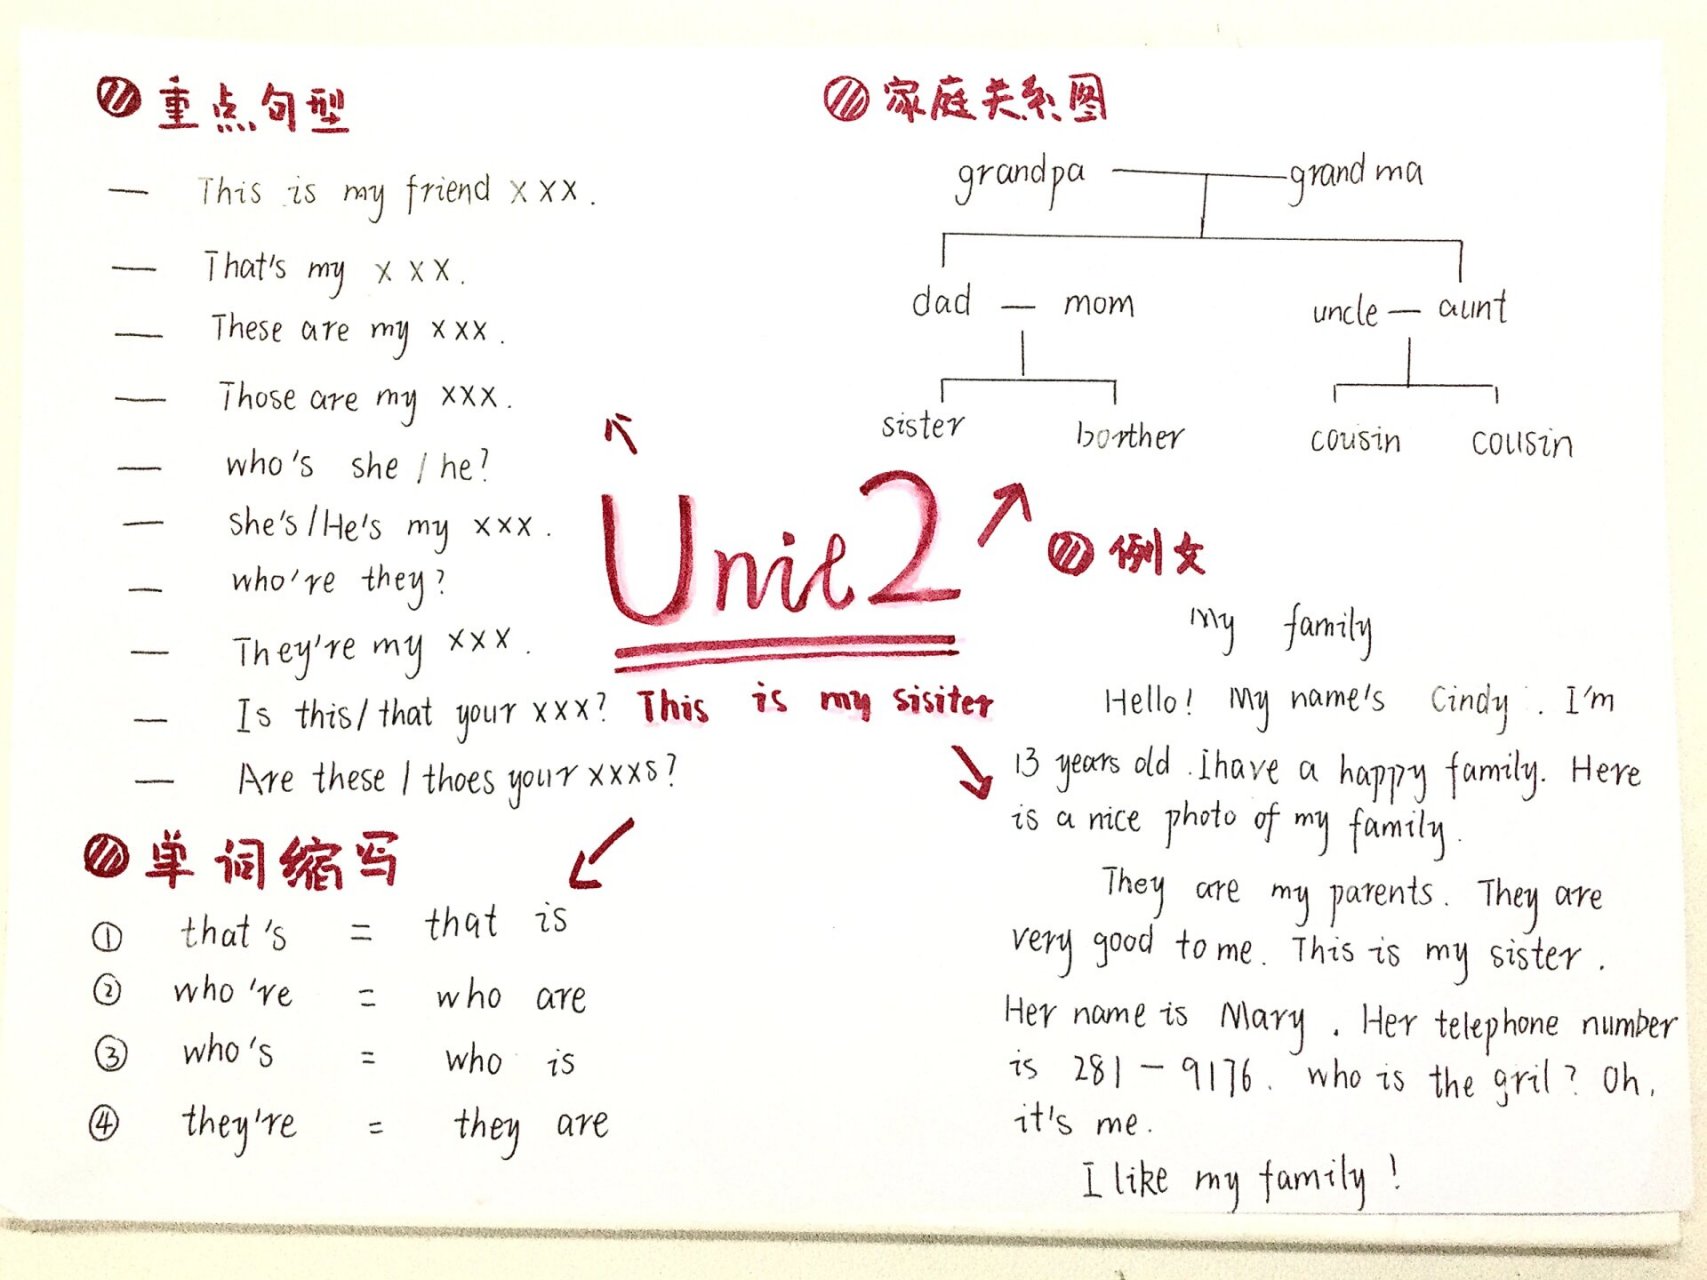 重点句型
— This is my friend xxx.
— That's my xxx.
— These are my xxx.
— Those are my xxx.
— who's she / he?
— she's / He's my xxx.
— who're they?
— They're my xxx.
— Is this / that your xxx?
— Are these / thoes your xxxs?
单词缩写
① that's = that is
② who're = who are
③ who's = who is
④ they're = they are
Unit 2
This is my sisiter
家庭关系图
grandpa — grandma
dad — mom uncle — aunt
sister borther cousin cousin
例文
My family
Hello! My name's Cindy. I'm
13 years old. I have a happy family. Here
is a nice photo of my family.
They are my parents. They are
very good to me. This is my sister.
Her name is Mary. Her telephone number
is 281-9176. who is the gril? Oh,
it's me.
I like my family!